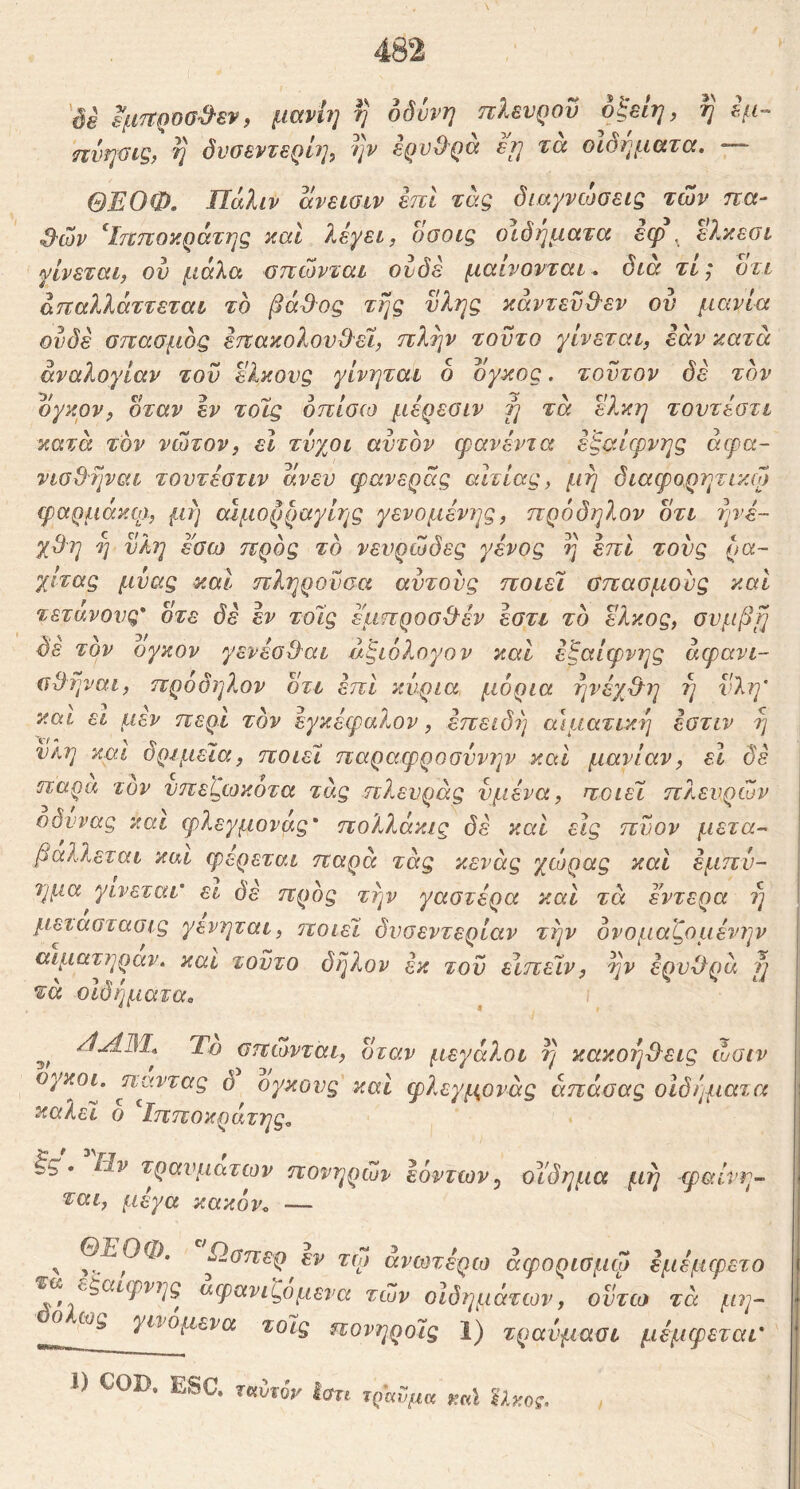 482
δὲ ἔμπροσθεν, μανίη ἢ ὀδύνη πλευροῦ ὀξείη, ἢ ἐμ-
πύησις, ἢ δυσεντερίη, ἢν ἐρυθρὰ ἔῃ τὰ οἰδήματα. —
ΘΕΟΦ. Πάλιν ἄνεισιν ἐπὶ τὰς διαγνώσεις τῶν πα-
θῶν Ἱπποκράτης καὶ λέγει, ὅσοις οἰδήματα ἐφ᾽ ἕλκεσι
γίνεται, οὐ μάλα σπῶνται οὐδὲ μαίνονται. διὰ τί; ὅτι
ἀπαλλάττεται τὸ βάθος τῆς ὕλης κἀντεῦθεν οὐ μανία
οὐδὲ σπασμὸς ἐπακολουθεῖ, πλὴν τοῦτο γίνεται, ἐὰν κατὰ
ἀναλογίαν τοῦ ἕλκους γίνηται ὁ ὄγκος. τοῦτον δὲ τὸν
ὄγκον, ὅταν ἐν τοῖς ὀπίσω μέρεσιν ᾖ τὰ ἕλκη τουτέστι
κατὰ τὸν νῶτον, εἰ τύχοι αὐτὸν φανέντα ἐξαίφνης ἀφα-
νισθῆναι τουτέστιν ἄνευ φανερᾶς αἰτίας, μὴ διαφορητικῷ
φαρμάκῳ, μὴ αἱμοῤῥαγίης γενομένης, πρόδηλον ὅτι ἠνέ-
χθη ἡ ὕλη ἔσω πρὸς τὸ νευρῶδες γένος ἢ ἐπὶ τοὺς ῥα-
χίτας μύας καὶ πληροῦσα αὐτοὺς ποιεῖ σπασμοὺς καὶ
τετάνους· ὅτε δὲ ἐν τοῖς ἔμπροσθέν ἐστι τὸ ἕλκος, συμβῇ
δὲ τὸν ὄγκον γενέσθαι ἀξιόλογον καὶ ἐξαίφνης ἀφανι-
σθῆναι, πρόδηλον ὅτι ἐπὶ κύρια μόρια ἠνέχθη ἡ ὕλη·
καὶ εἰ μὲν περὶ τὸν ἐγκέφαλον, ἐπειδὴ αἱματική ἐστιν ἡ
ὕλη καὶ δριμεῖα, ποιεῖ παραφροσύνην καὶ μανίαν, εἰ δὲ
παρὰ τὸν ὑπεζωκότα τὰς πλευρὰς ὑμένα, ποιεῖ πλευρῶν
ὀδύνας καὶ φλεγμονάς· πολλάκις δὲ καὶ εἰς πῦον μετα-
βάλλεται καὶ φέρεται παρὰ τὰς κενὰς χώρας καὶ ἐμπύ-
ημα γίνεται· εἰ δὲ πρὸς τὴν γαστέρα καὶ τὰ ἔντερα ἡ
μετάστασις γένηται, ποιεῖ δυσεντερίαν τὴν ὀνομαζομένην
αἱματηράν. καὶ τοῦτο δῆλον ἐκ τοῦ εἰπεῖν, ἢν ἐρυθρὰ ᾖ
τὰ οἰδήματα.
ΔΑΜ. Τὸ σπῶνται, ὅταν μεγάλοι ἢ κακοήθεις ὦσιν
ὄγκοι. πάντας δ᾽ ὄγκους καὶ φλεγμονὰς ἁπάσας οἰδήματα
καλεῖ ὁ Ἱπποκράτης.
ξς΄. Ἢν τραυμάτων πονηρῶν ἐόντων, οἴδημα μὴ φαίνη-
ται, μέγα κακόν. —
ΘΕΟΦ. Ὥσπερ ἐν τῷ ἀνωτέρω ἀφορισμῷ ἐμέμφετο
τὰ ἐξαίφνης ἀφανιζόμενα τῶν οἰδημάτων, οὕτω τὰ μη-
δόλως γινόμενα τοῖς πονηροῖς 1) τραύμασι μέμφεται·
1) COD. ESC. ταὐτόν ἐστι τραῦμα καὶ ἕλκος.